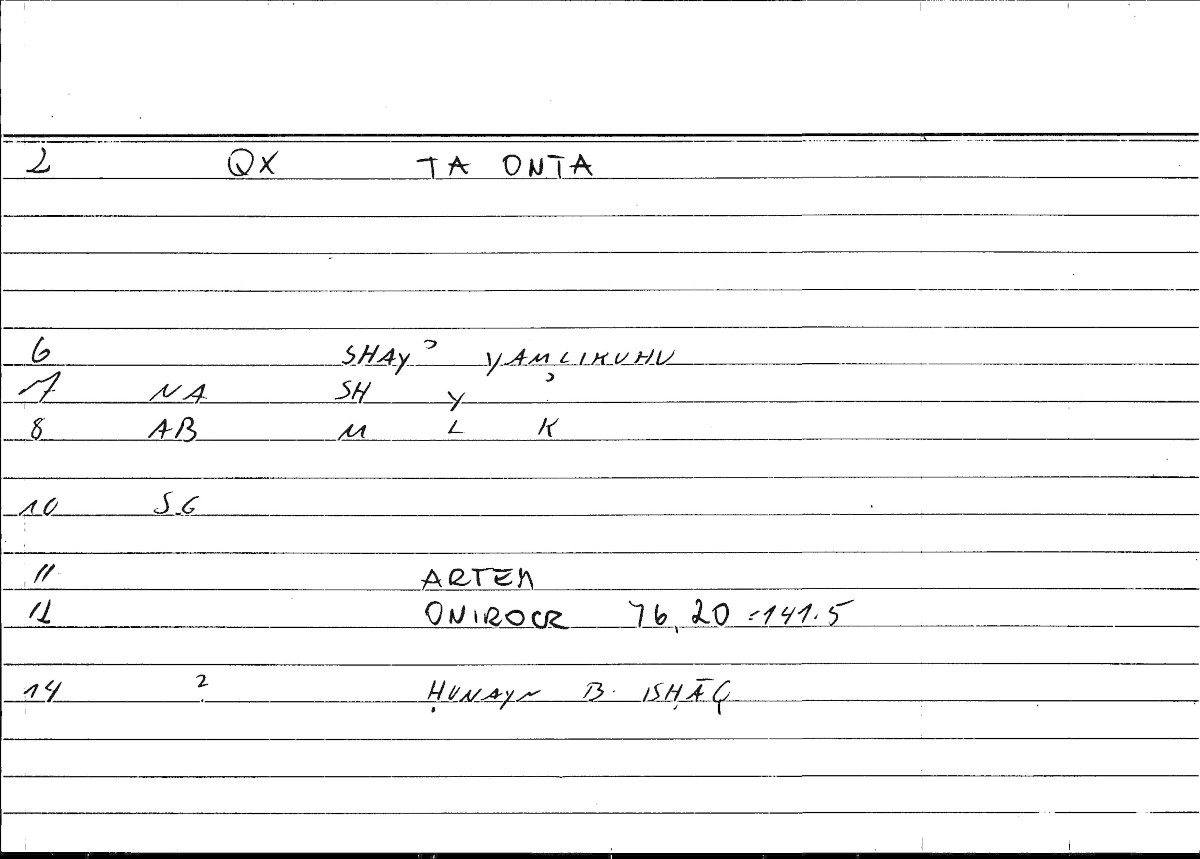 2 QX TA ONTA
6 SHAYʾ YAMLIKUHU
7 NA SH Y ʾ
8 AB M L K
10 SG
11 ARTEM
12 ONIROCR 76,20 = 141.5
14 ? ḤUNAYN B. ISḤĀQ